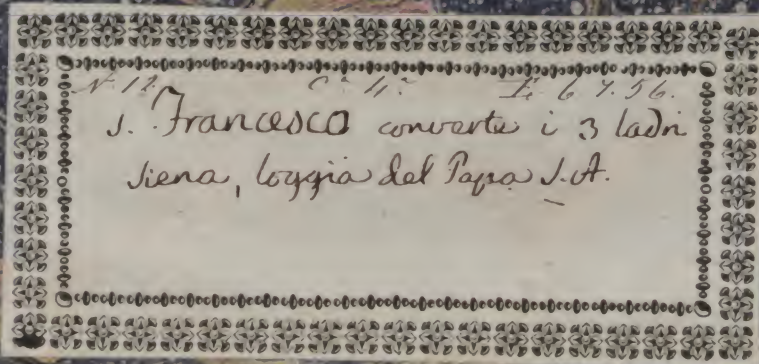 N. 12. C. 4. I. 6 7. 56.
S. Francesco converte i 3 ladri
Siena, loggia del Papa S.A.